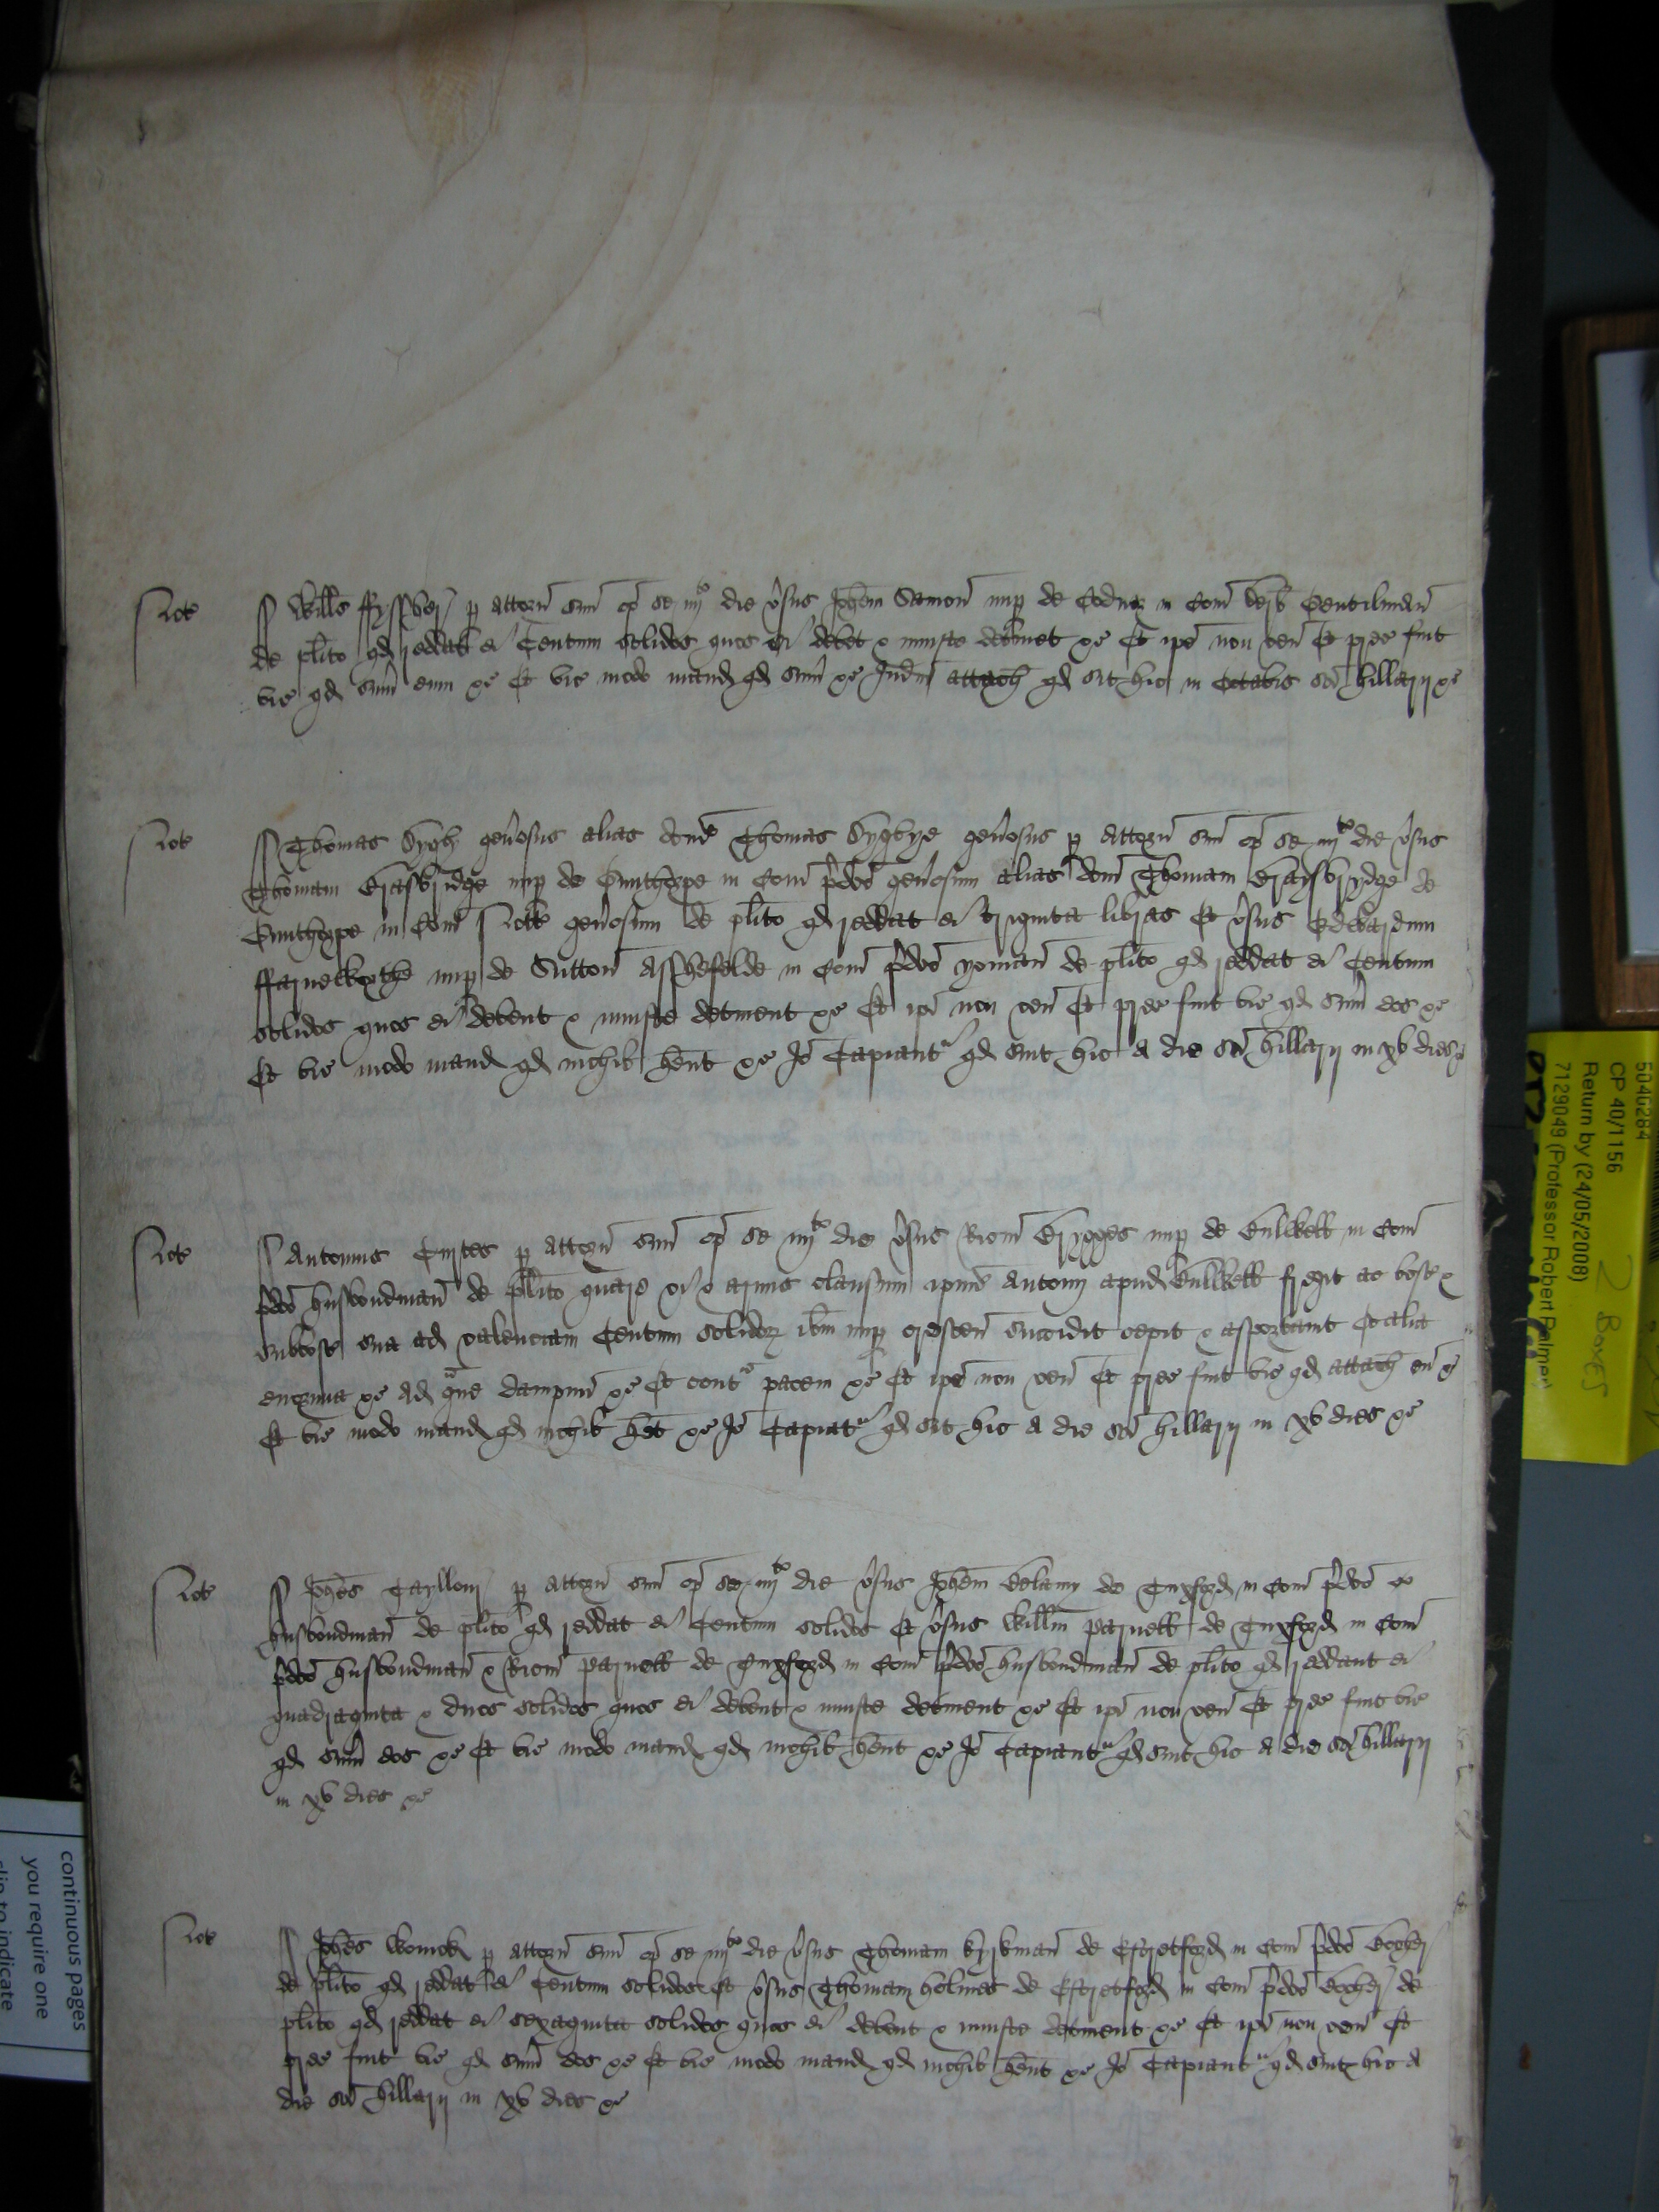 Nott
Willūs per attorn suū op se iiij to die vrsus Johēm Samon nup de Codnor in Com Derb Gentilman
de plīto qd reddat ei Centum solidos quos ei debet & iniuste detinet &c Et ipe non ven Et prec fuit
vic qd sum eum &c Et vic modo mand qd sum &c Judm attach qd sit hic in Octabis sci hillarij &c
Nott
Thomas generosus alias dcus Thomas generosus per attorn suū op se iiij to die vrsus
Thomam Brasbridge nup de Gunthorpe in Com pdco generosum alias dcm Thomam Braysbrydge de
Gunthorpe in Com Nott generosum de plīto qd reddat ei triginta libras Et vrsus Edwardum
nup de Sutton Asshefelde in Com pdco yoman de plīto qd reddat ei Centum
solidos quos ei debent & iniuste detinent &c Et ipi non ven Et prec fuit vic qd sum eos &c
Et vic modo mand qd nichil hent &c Io Capiantur qd sint hic a die sci hillarij in xv dies &c
Nott
Antonius per attorn suū op se iiij to die vrsus Ricm Brygges nup de Bulwell in Com
pdco husbondman de plīto quare vi & armis clausum ipius Antonij apud Bulwell fregit ac bosc &
subbosc sua ad valenciam Centum solidor ibm nup crescen succidit cepit & asportauit Et alia
enormia &c Ad graue dampnū &c Et contra pacem &c Et ipe non ven Et prec fuit vic qd attach eū &c
Et vic modo mand qd nichil het &c Io Capiatur qd sit hic a die sci hillarij in xv dies &c
Nott
Johēs per attorn suū op se iiij to die vrsus Johēm Belamy de Tuxford in Com pdco
husbondman de plīto qd reddat ei Centum solidos Et vrsus Willm Parnell de Tuxford in Com
pdco husbondman & Ricm Parnell de Tuxford in Com pdco husbondman de plīto qd reddant ei
quadraginta & duos solidos quos ei debent & iniuste detinent &c Et ipi non ven Et prec fuit vic
qd sum eos &c Et vic modo mand qd nichil hent &c Io Capiantur qd sint hic a die sci hillarij
in xv dies &c
Nott
Johēs per attorn suū op se iiij to die vrsus Thomam Kyrkman de Estretford in Com pdco
de plīto qd reddat ei Centum solidos Et vrsus Thomam Holmes de Estretford in Com pdco de
plīto qd reddat ei sexaginta solidos quos ei debent & iniuste detinent &c Et ipi non ven Et
prec fuit vic qd sum eos &c Et vic modo mand qd nichil hent &c Io Capiantur qd sint hic a
die sci hillarij in xv dies &c
5040284
CP 40/1156
Return by (24/05/2008)
7129049 (Professor Robert Palmer)
2 BOXES
continuous pages
you require one
slip to indicate